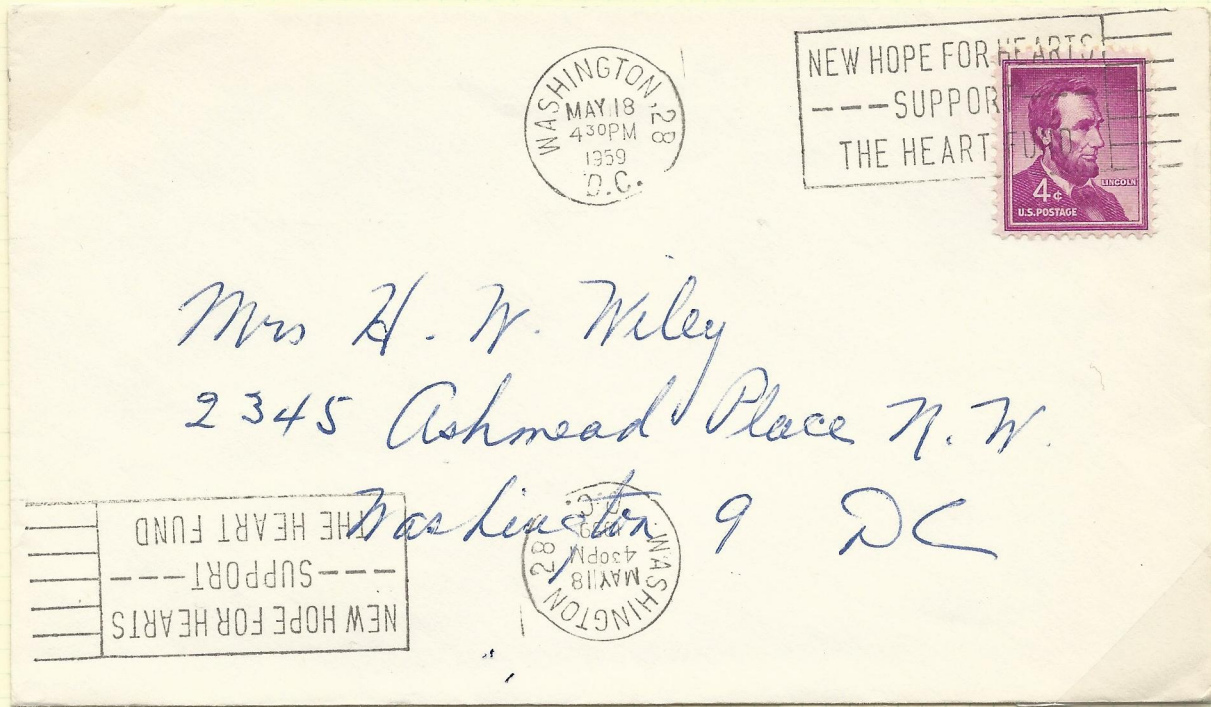 WASHINGTON, 28
MAY 18
4 30 PM
1959
D.C.
NEW HOPE FOR HEARTS
---SUPPORT
THE HEART FUND
4¢
LINCOLN
U.S. POSTAGE
Mrs H. W. Wiley
2345 Ashmead Place N. W.
Washington 9 DC
NEW HOPE FOR HEARTS
---SUPPORT---
THE HEART FUND
WASHINGTON 28
MAY 18
4 30 PM
1959
D.C.